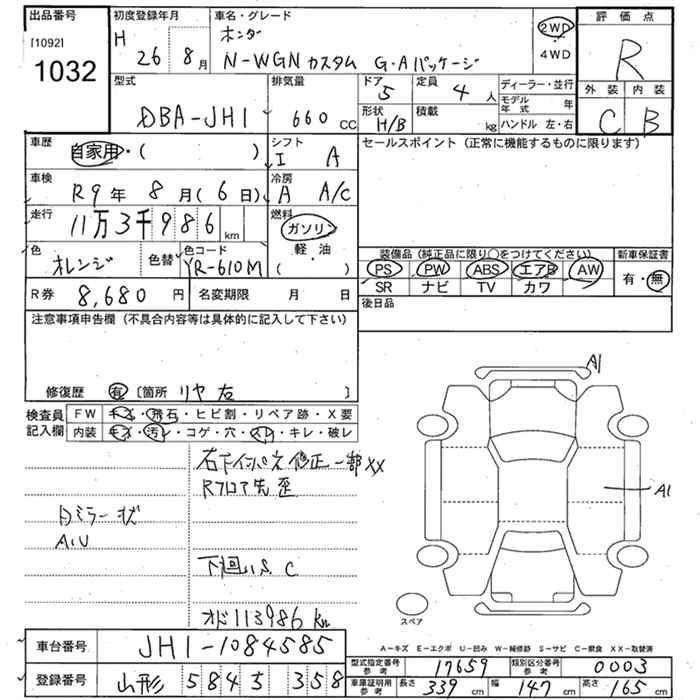 出品番号
[1092]
1032
初度登録年月
H 26 8月
車名・グレード
ホンダ
N-WGN カスタム G・Aパッケージ
2WD
4WD
評価点
R
外装 内装
C B
型式
DBA-JH1
排気量
660 cc
ドア 5
形状 H/B
定員 4 人
積載 kg
ディーラー・並行
モデル年式 年
ハンドル 左・右
車歴
自家用・( )
シフト
I A
セールスポイント(正常に機能するものに限ります)
車検
R9年 8月(6日)
冷房
A A/C
走行
11万3千986km
燃料
ガソリン
軽・油
( )
色
オレンジ
色替
色コード
YR-610M
装備品(純正品に限り○をつけてください)
PS PW ABS エアB AW
SR ナビ TV カワ
新車保証書
有・無
R券 8,680円
名変期限 月 日
後日品
注意事項申告欄(不具合内容等は具体的に記入して下さい)
修復歴 有 [箇所 リヤ 左 ]
検査員記入欄
FW キズ・飛石・ヒビ割・リペア跡・X要
内装 キズ・汚レ・コゲ・穴・スレ・キレ・破レ
修正一部XX
Rフロア先 歪
ミラー状
下回りS.C
オド113986km
A1
A1
スペア
A-キズ E-エクボ U-凹み W-補修跡 S-サビ C-腐食 XX-取替済
車台番号 JH1-1084585
登録番号 山形 584 5 358
型式指定番号 参考 17659
類別区分番号 参考 0003
車庫証明用 参考 長さ 339 cm 幅 147 cm 高さ 165 cm